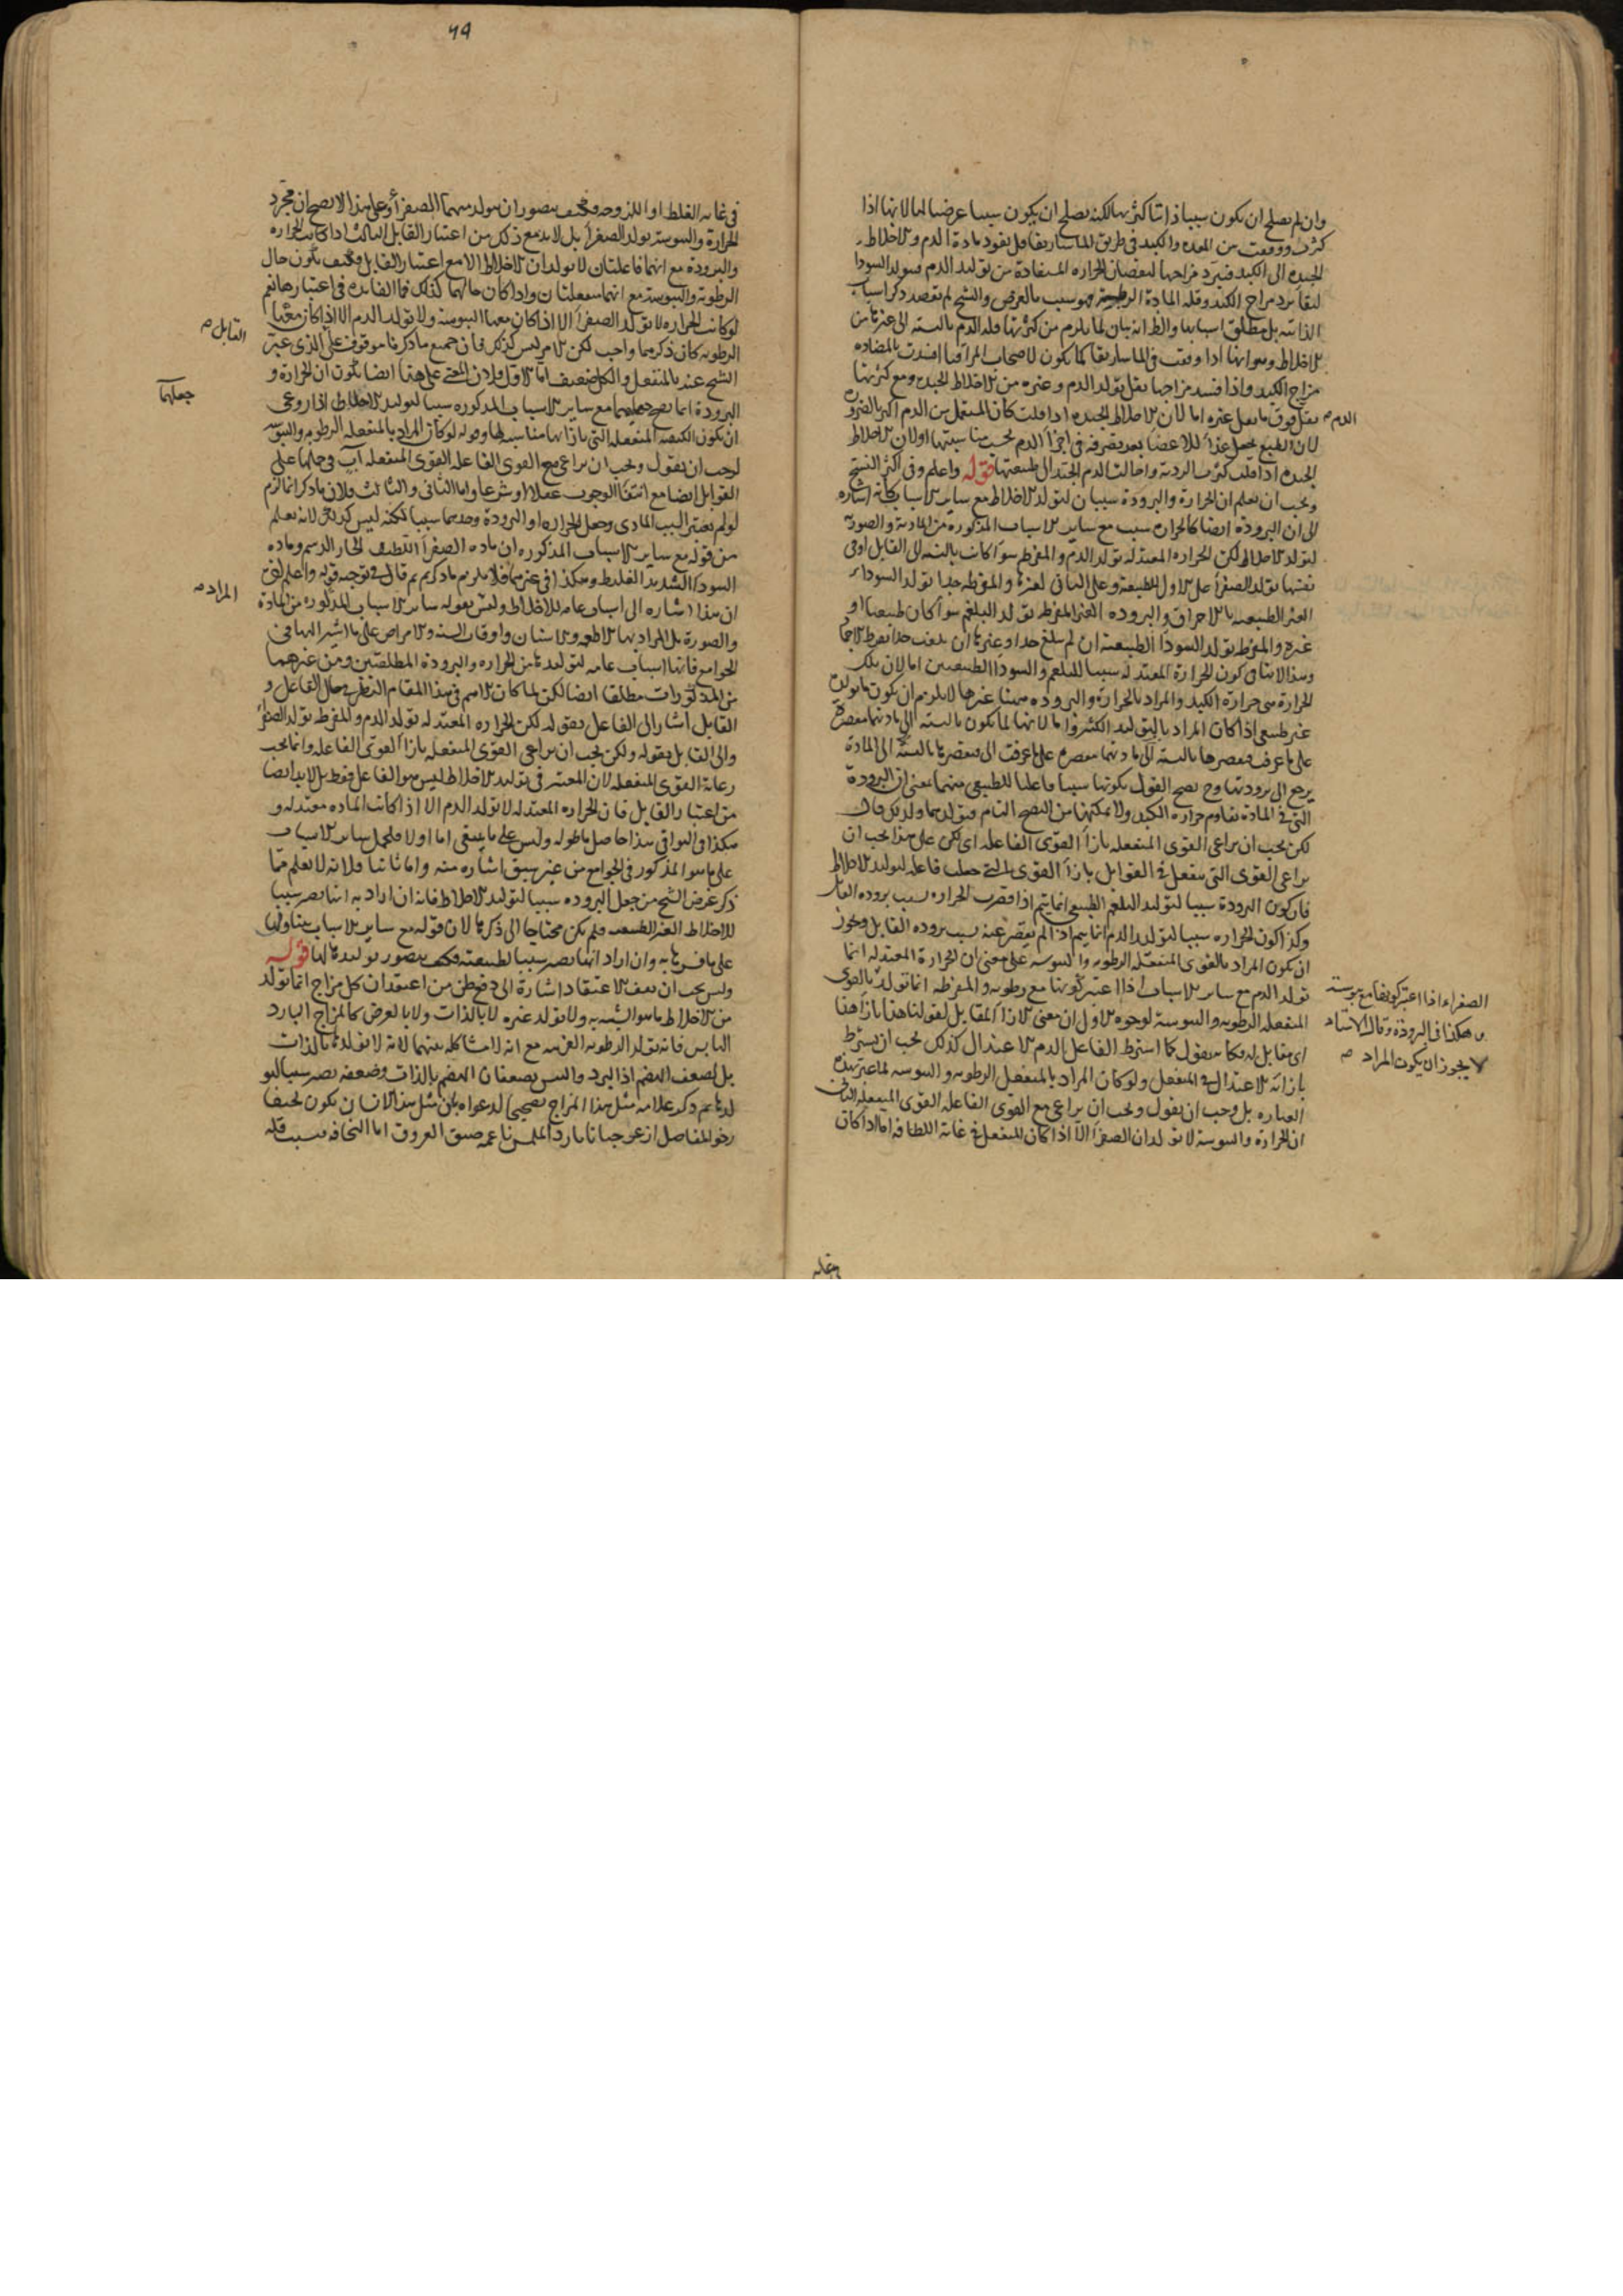 ٦٩
وان لم يصلح ان يكون سببا ذاتيا كثرتها لكنه يصلح ان يكون سببا عرضيا لها لانها اذا
كثرت ووقعت بين المعدة والكبد في طريق الماساريقا قل نفوذ مادة الدم والاخلاط
الجيدة الى الكبد فيبرد مزاجها لنقصان الحرارة المستفادة من توليد الدم فيتولد السودا
لبقاء برد مزاج الكبد وقلة المادة الرطبة فهو سبب بالعرض والشيخ لم يقصد ذكر اسباب
الذاتية بل مطلق اسبابها والظ انه بيان لما يلزم من كثرتها قلة الدم بالنسبة الى غيرها من
الاخلاط وهو انها اذا وقعت في الماساريقا كما يكون لاصحاب المراقيا افسدت بالمضادة
مزاج الكبد واذا فسد مزاجها يقل تولد الدم وغيره من الاخلاط الجيدة ومع كثرتها
يقل فوق ما يقل غيره اما لان الاخلاط الجيدة اذا قلت كان المستعمل من الدم اكثر بالضرورة
الدم
لان الطبع يجعل غذاء للاعضا بعد تصرفه في اجزاء الدم بحسب مناسبتها اولان الاخلاط
الجيدة اذا قلت كثرت الردية واحالت الدم الجيد الى طبيعتها قوله واعلم وفي اكثر النسخ
ويجب ان تعلم ان الحرارة والبرودة سببان لتولد الاخلاط مع ساير الاسباب كانه اشارة
الى ان البرودة ايضا كالحرارة سبب مع ساير الاسباب المذكورة من المادية والصورية
لتولد الاخلاط لكن الحرارة المعتدلة تولد الدم والمفرطة سواء كانت بالنسبة الى القابل او في
نفسها تولد الصفرا على الاول الطبيعية وعلى الثاني لغيرها والمفرطة جدا تولد السوداء
الغير الطبيعية بالاحراق والبرودة الغير المفرطة تولد البلغم سواء كان طبيعيا او
غيره والمفرطة تولد السودا الطبيعية ان لم تبلغ حدا وغيرها ان بلغت حدا تفرط الاجماد
وهذا لا ينافي كون الحرارة المعتدلة سببا للبلغم والسودا الطبيعيين اما لان تلك
الحرارة هي حرارة الكبد والمراد بالحرارة والبرودة ههنا غيرها لا يلزم ان يكون ما يولده
غير طبيعي اذا كان المراد بالتوليد الاكثر واما لانها لما يكون بالنسبة الى مادتها مقصرة
على ما عرفت فتقصيرها بالنسبة الى مادتها مقصرة على ما عرفت الى تقصيرها بالنسبة الى المادة
يرجع الى برودتها وح يصح القول بكونها سببا فاعليا للطبيعي منهما بمعنى ان البرودة
التي في المادة تقاوم حرارة الكبد ولا يمكنها من النضج التام فيتولد هما ولذلك قال
لكن يجب ان يراعى القوى المنفعلة بازاء القوى الفاعلة اى لكن على هذا يجب ان
يراعى القوى التي تنفعل في القوابل بازاء القوى التي جعلت فاعلة لتوليد الاخلاط
فان كون البرودة سببا لتوليد البلغم الطبيعي انما يتم اذا قصرت الحرارة بسبب برودة القابل
وكذا كون الحرارة سببا لتولد الدم انما يتم اذا لم تقصر عنه بسبب برودة القابل ويجوز
ان يكون المراد بالقوى المنفعلة الرطوبة واليبوسة على معنى ان الحرارة المعتدلة انما
تولد الدم مع ساير الاسباب اذا اعتبر كونها مع رطوبة والمفرطة انما تولد بالقوى
الصفراء اذا اعتبر كونها مع يبوسة
وهكذا في البرودة وقال الاستاد
لا يجوز ان يكون المراد
المنفعلة الرطوبة واليبوسة لوجوه الاول ان معنى الازاء المقابل لقولنا هذا بازاء هذا
اى مقابل له فكانه يقول كما اشترط الفاعل الدم الاعتدال كذلك يجب ان يشترط
بازائه الاعتدال في المنفعل ولو كان المراد بالمنفعل الرطوبة واليبوسة لما عبر بهذه
العبارة بل وجب ان يقول ويجب ان يراعى مع القوى الفاعلة القوى المنفعلة الثاني
ان الحرارة واليبوسة لا تولدان الصفرا الا اذا كان المنفعل في غاية اللطافة اما اذا كان
في غاية الغلظ او اللزوجة فكيف يتصور ان يتولد منهما الصفرا وعلى هذا لا يصح ان مجرد
الحرارة واليبوسة تولد الصفرا بل لا بد مع ذلك من اعتبار القابل الثالث اذا كانت الحرارة
والبرودة مع انهما فاعلتان لا تولدان الاخلاط الا مع اعتبار القابل فكيف يكون حال
الرطوبة واليبوسة مع انهما منفعلتان واذا كان حالهما كذلك فما الفايدة في اعتبارها نعم
لو كانت الحرارة لا تولد الصفرا الا اذا كان معها اليبوسة ولا تولد الدم الا اذا كان معها
القابل
الرطوبة كان ذكرهما واجب لكن الامر ليس كذلك فان جميع ما ذكرنا موقوف على الذى عبر
الشيخ عنه بالمنفعل والكل ضعيف اما الاول فلان المعنى على هذا ايضا يكون ان الحرارة و
جعلهما
البرودة انما يصح جعلهما مع ساير الاسباب المذكورة سببا لتوليد الاخلاط اذا روعى
ان يكون الكيفية المنفعلة التي بازائها مناسبة لها وقوله لو كان المراد بالمنفعلة الرطوبة واليبوسة
لوجب ان يقول ويجب ان يراعى مع القوى الفاعلة القوى المنفعلة آت في حملها على
القوابل ايضا مع انتفاء الوجوب عقلا او شرعا واما الثاني والثالث فلان ما ذكر انما لزم
لو لم يعتبر السبب المادى وجعل الحرارة او البرودة وحدهما سببا لكنه ليس كذلك لانه يعلم
من قوله مع ساير الاسباب المذكورة ان مادة الصفرا اللطيف الحار الدسم ومادة
السودا الشديد الغليظ وهكذا في غيرهما فلا يلزم ما ذكره ثم قال في توجيه قوله واعلم لفى
المراد
ان هذا اشارة الى اسباب عامة للاخلاط وليس بقوله ساير الاسباب المذكورة من المادة
والصورة بل المراد بها الاطعمة والاسنان واوقات السنة والامراض على ما اشير اليها في
الجوامع فانها اسباب عامة لتوليدها من الحرارة والبرودة المطلقتين ومن غيرهما
من المذكورات مطلقا ايضا لكن لما كان الاهم في هذا المقام النظر في حال الفاعل و
القابل اشار الى الفاعل بقوله لكن الحرارة المعتدلة تولد الدم والمفرطة تولد الصفرا
والى القابل بقوله ولكن يجب ان يراعى القوى المنفعلة بازاء القوى الفاعلة وانما يجب
رعاية القوى المنفعلة لان المعتبر في توليد الاخلاط ليس هو الفاعل فقط بل لا بد ايضا
من اعتبار القابل فان الحرارة المعتدلة لا تولد الدم الا اذا كانت المادة معتدلة و
هكذا في البواقي هذا حاصل ما طوله وليس على ما ينبغى اما اولا فلحمل ساير الاسباب
على ما هو المذكور في الجوامع من غير سبق اشارة منه واما ثانيا فلانه لا يعلم مما
ذكر غرض الشيخ من جعل البرودة سببا لتوليد الاخلاط فانه ان اراد به انها تصير سببا
للاخلاط الغير الطبيعية فلم يكن محتاجا الى ذكرها لان قوله مع ساير الاسباب يتناولها
على ما فسرها به وان اراد انها تصير سببا لطبيعته فكيف يتصور توليدها لها قوله
وليس يجب ان تقف الاعتقاد اشارة الى دفع ظن من اعتقد ان كل مزاج انما تولد
من الاخلاط ما هو الشبيه به ولا تولد غيره لا بالذات ولا بالعرض كالمزاج البارد
اليابس فانه تولد الرطوبة الغريبة مع انه لا مشاكلة بينهما لانه لا تولدها بالذات
بل لضعف الهضم اذ البرد واليبس يضعفان الهضم بالذات وضعفه يصير سببا لتو
لدها ثم ذكر علامة مثل هذا المزاج تصحيحا لدعواه بان مثل هذا الانسان يكون نحيفا
رخو المفاصل ازعر جبانا بارد الملمس ناعمه ضيق العروق اما النحافة فبسبب قلة